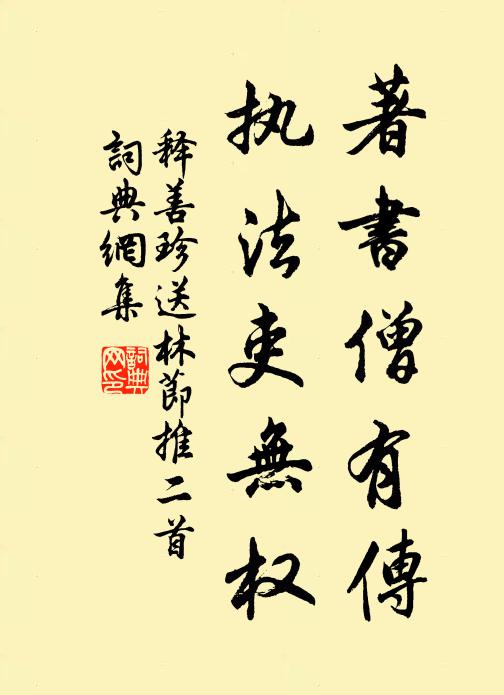 著書僧有傳
执法吏無权
释善珍送林節推二首
詞典網集
詞典网印